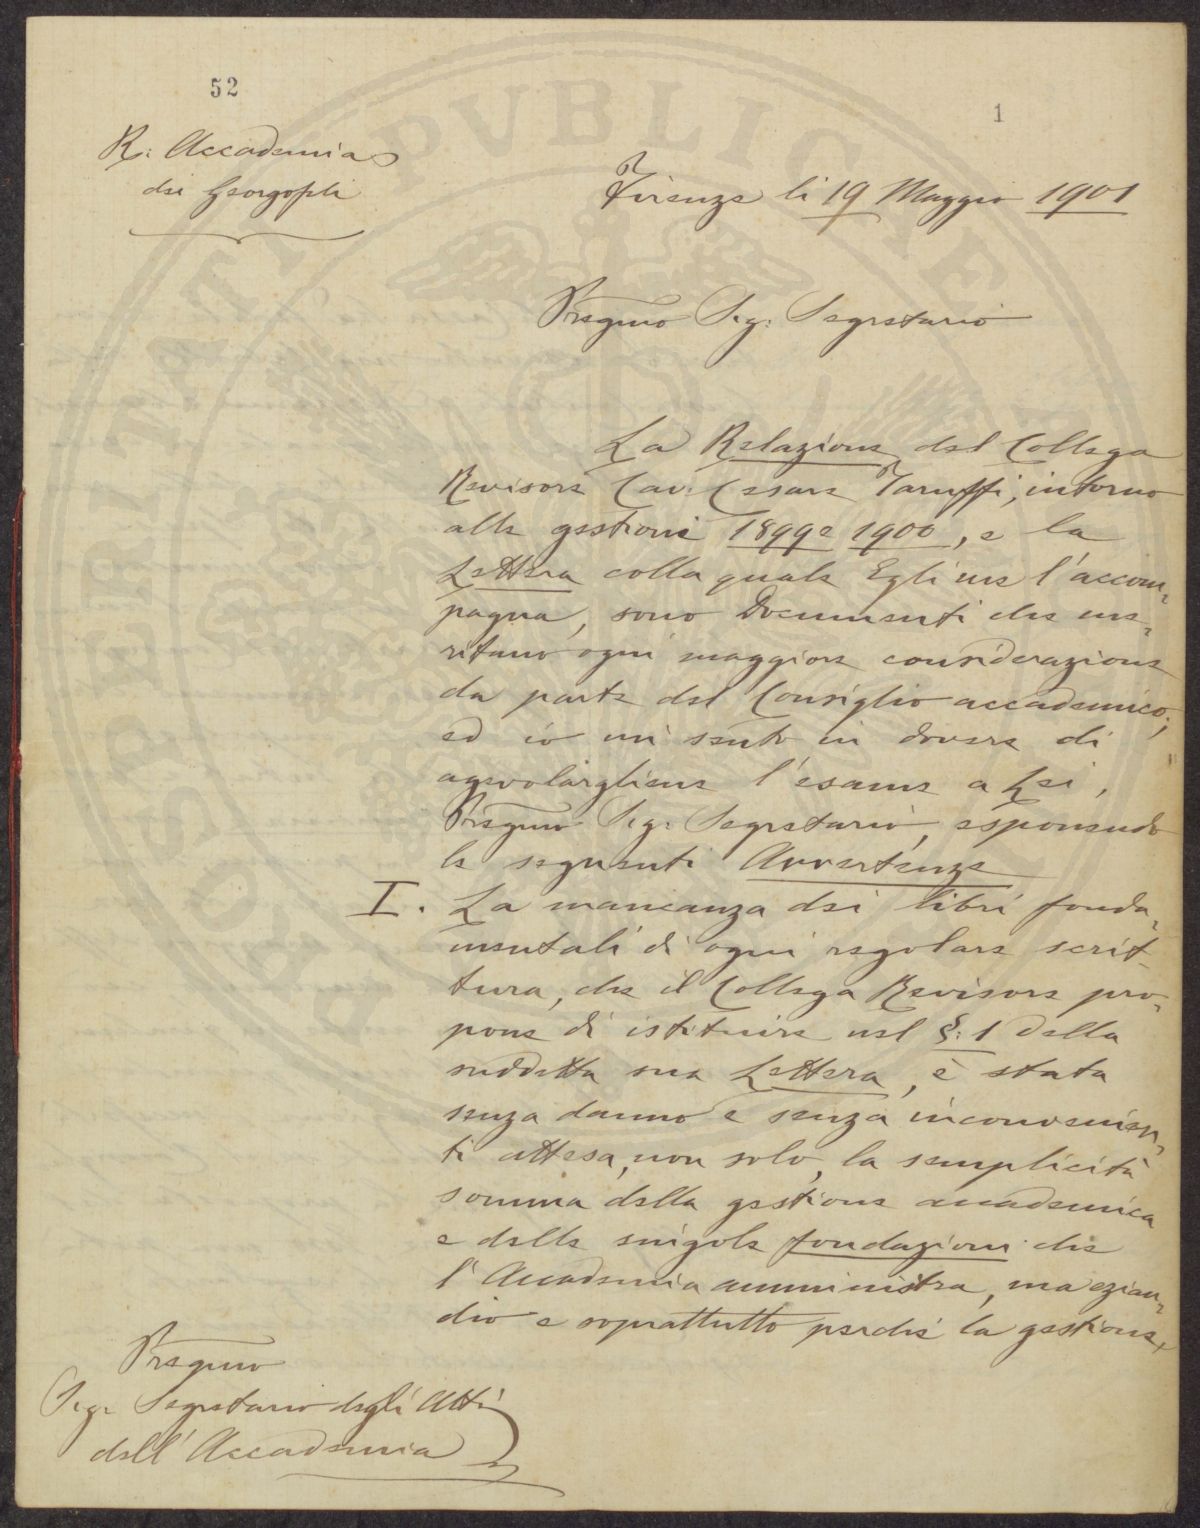 52
1
R: Accademia
dei Georgofili
Firenze li 19 Maggio 1901
Pregmo Sig: Segretario
La Relazione del Collega
Revisore Cav: Cesare Taruffi, intorno
alle gestioni 1899 e 1900, e la
Lettera colla quale Egli me l'accom-
pagna, sono Documenti che me-
ritano ogni maggiore considerazione
da parte del Consiglio accademico;
ed io mi sento in dovere di
agevolargliene l'esame a Lei,
Pregmo Sig: Segretario, esponendo
le seguenti Avvertenze
I. La mancanza dei libri fonda-
mentali di ogni regolare scrit-
tura, che il Collega Revisore pro-
pone di istituire nel §: 1 della
suddetta sua Lettera, è stata
senza danno e senza inconvenien-
ti attesa, non solo, la semplicità
somma della gestione accademica
e delle singole fondazioni che
l'Accademia amministra, ma ezian-
dio e soprattutto perchè la gestione,
Pregmo
Sig: Segretario degli Atti
dell'Accademia
PROSPERITATI PVBLICAE